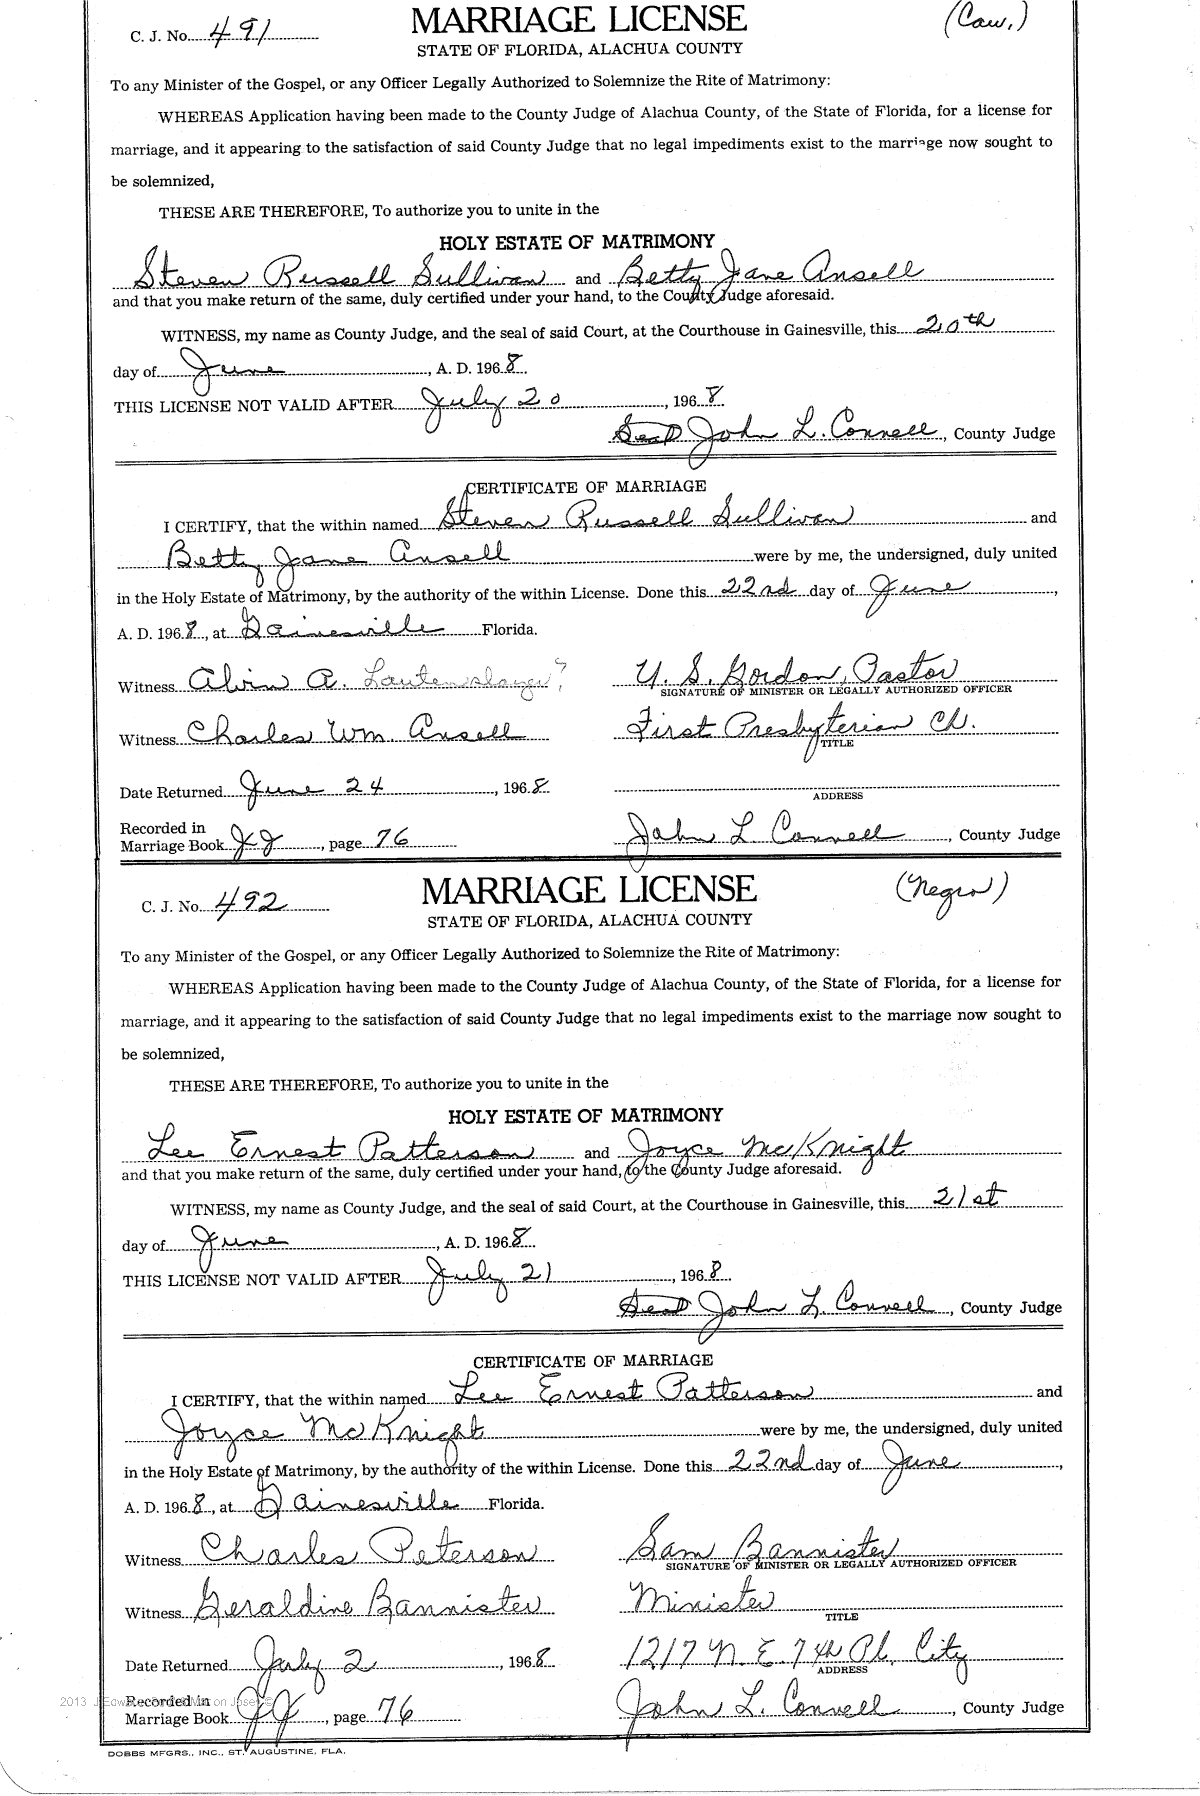 C. J. No. 491 MARRIAGE LICENSE (Caw.)
STATE OF FLORIDA, ALACHUA COUNTY
To any Minister of the Gospel, or any Officer Legally Authorized to Solemnize the Rite of Matrimony:
WHEREAS Application having been made to the County Judge of Alachua County, of the State of Florida, for a license for
marriage, and it appearing to the satisfaction of said County Judge that no legal impediments exist to the marriage now sought to
be solemnized,
THESE ARE THEREFORE, To authorize you to unite in the
HOLY ESTATE OF MATRIMONY
Steven Russell Sullivan and Betty Jane Ansell
and that you make return of the same, duly certified under your hand, to the County Judge aforesaid.
WITNESS, my name as County Judge, and the seal of said Court, at the Courthouse in Gainesville, this 20th
day of June, A. D. 1968.
THIS LICENSE NOT VALID AFTER July 20, 1968.
Seal John L. Connell, County Judge
CERTIFICATE OF MARRIAGE
I CERTIFY, that the within named Steven Russell Sullivan and
Betty Jane Ansell were by me, the undersigned, duly united
in the Holy Estate of Matrimony, by the authority of the within License. Done this 22nd day of June,
A. D. 1968, at Gainesville Florida.
Witness Alvin A. U. S. Gordon, Pastor
SIGNATURE OF MINISTER OR LEGALLY AUTHORIZED OFFICER
Witness Charles Wm. Ansell First Presbyterian Ch.
TITLE
Date Returned June 24, 1968.
ADDRESS
Recorded in
Marriage Book JJ, page 76 John L. Connell, County Judge
C. J. No. 492 MARRIAGE LICENSE (Negro)
STATE OF FLORIDA, ALACHUA COUNTY
To any Minister of the Gospel, or any Officer Legally Authorized to Solemnize the Rite of Matrimony:
WHEREAS Application having been made to the County Judge of Alachua County, of the State of Florida, for a license for
marriage, and it appearing to the satisfaction of said County Judge that no legal impediments exist to the marriage now sought to
be solemnized,
THESE ARE THEREFORE, To authorize you to unite in the
HOLY ESTATE OF MATRIMONY
Lee Ernest Patterson and Joyce McKnight
and that you make return of the same, duly certified under your hand, to the County Judge aforesaid.
WITNESS, my name as County Judge, and the seal of said Court, at the Courthouse in Gainesville, this 21st
day of June, A. D. 1968.
THIS LICENSE NOT VALID AFTER July 21, 1968.
Seal John L. Connell, County Judge
CERTIFICATE OF MARRIAGE
I CERTIFY, that the within named Lee Ernest Patterson and
Joyce McKnight were by me, the undersigned, duly united
in the Holy Estate of Matrimony, by the authority of the within License. Done this 22nd day of June,
A. D. 1968, at Gainesville Florida.
Witness Charles Peterson Sam Bannister
SIGNATURE OF MINISTER OR LEGALLY AUTHORIZED OFFICER
Witness Geraldine Bannister Minister
TITLE
Date Returned July 2, 1968. 1217 N. E. 7th Pl. City
ADDRESS
2013
Recorded in
Marriage Book JJ, page 76 John L. Connell, County Judge
DOBBS MFGRS., INC., ST. AUGUSTINE, FLA.